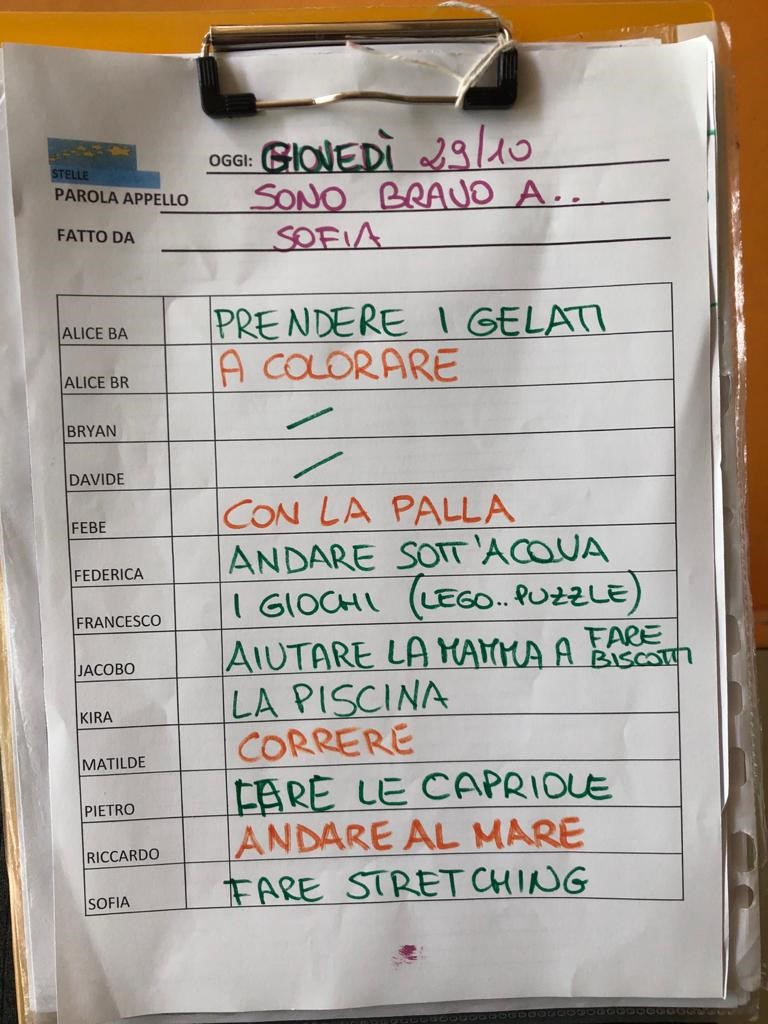 STELLE
OGGI: GIOVEDÌ 29/10
PAROLA APPELLO SONO BRAVO A...
FATTO DA SOFIA
ALICE BA PRENDERE I GELATI
ALICE BR A COLORARE
BRYAN /
DAVIDE /
FEBE CON LA PALLA
FEDERICA ANDARE SOTT'ACQUA
FRANCESCO I GIOCHI (LEGO..PUZZLE)
JACOBO AIUTARE LA MAMMA A FARE BISCOTTI
KIRA LA PISCINA
MATILDE CORRERE
PIETRO FARE LE CAPRIOLE
RICCARDO ANDARE AL MARE
SOFIA FARE STRETCHING